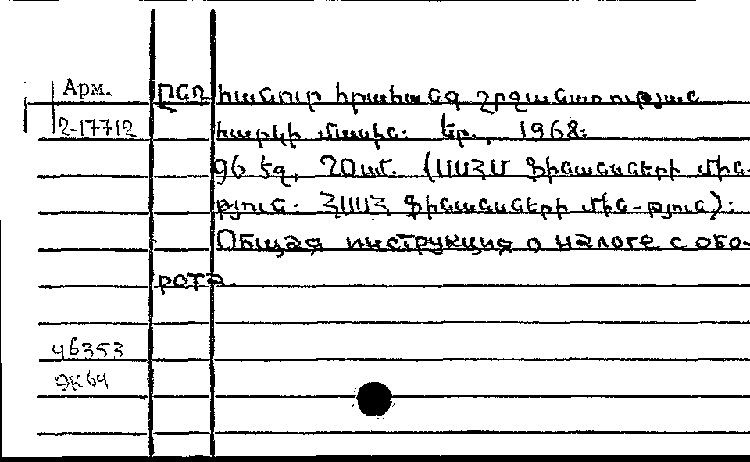 Арм. ԸՆԴՀԱՆՈՒՐ հրահանգ շրջանառության
2-17712 հարկի մասին։ Եր., 1968։
96 էջ, 20սմ. (ՍՍՀՄ Ֆինանսների մին-
թյուն։ ՀՍՍՀ Ֆինանսների մին-թյուն)։
Общая инструкция о налоге с обо-
рота.
46353